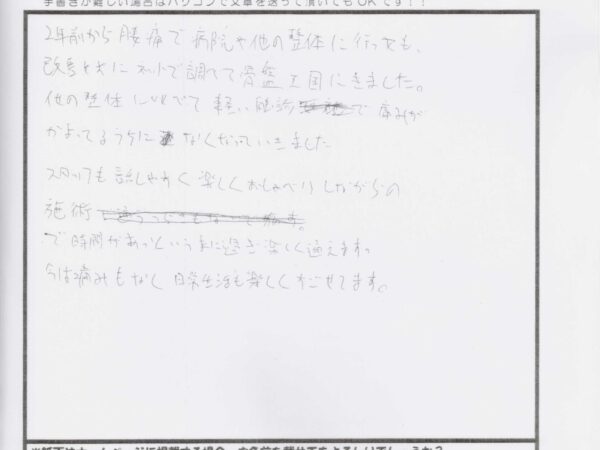 手書きが難しい場合はパソコンで文章を送って頂いてもOKです！！
2年前から腰痛で病院や他の整体に行っても、
改善せずにネットで調べて骨盤王国にきました。
他の整体に比べて軽い で痛みが
かよってるうちに なくなっていきました
スタッフも話しやすく楽しくおしゃべりしながらの
施術
で時間があっというまに過ぎ楽しく通えます。
今は痛みもなく日常生活も楽しくすごせてます。